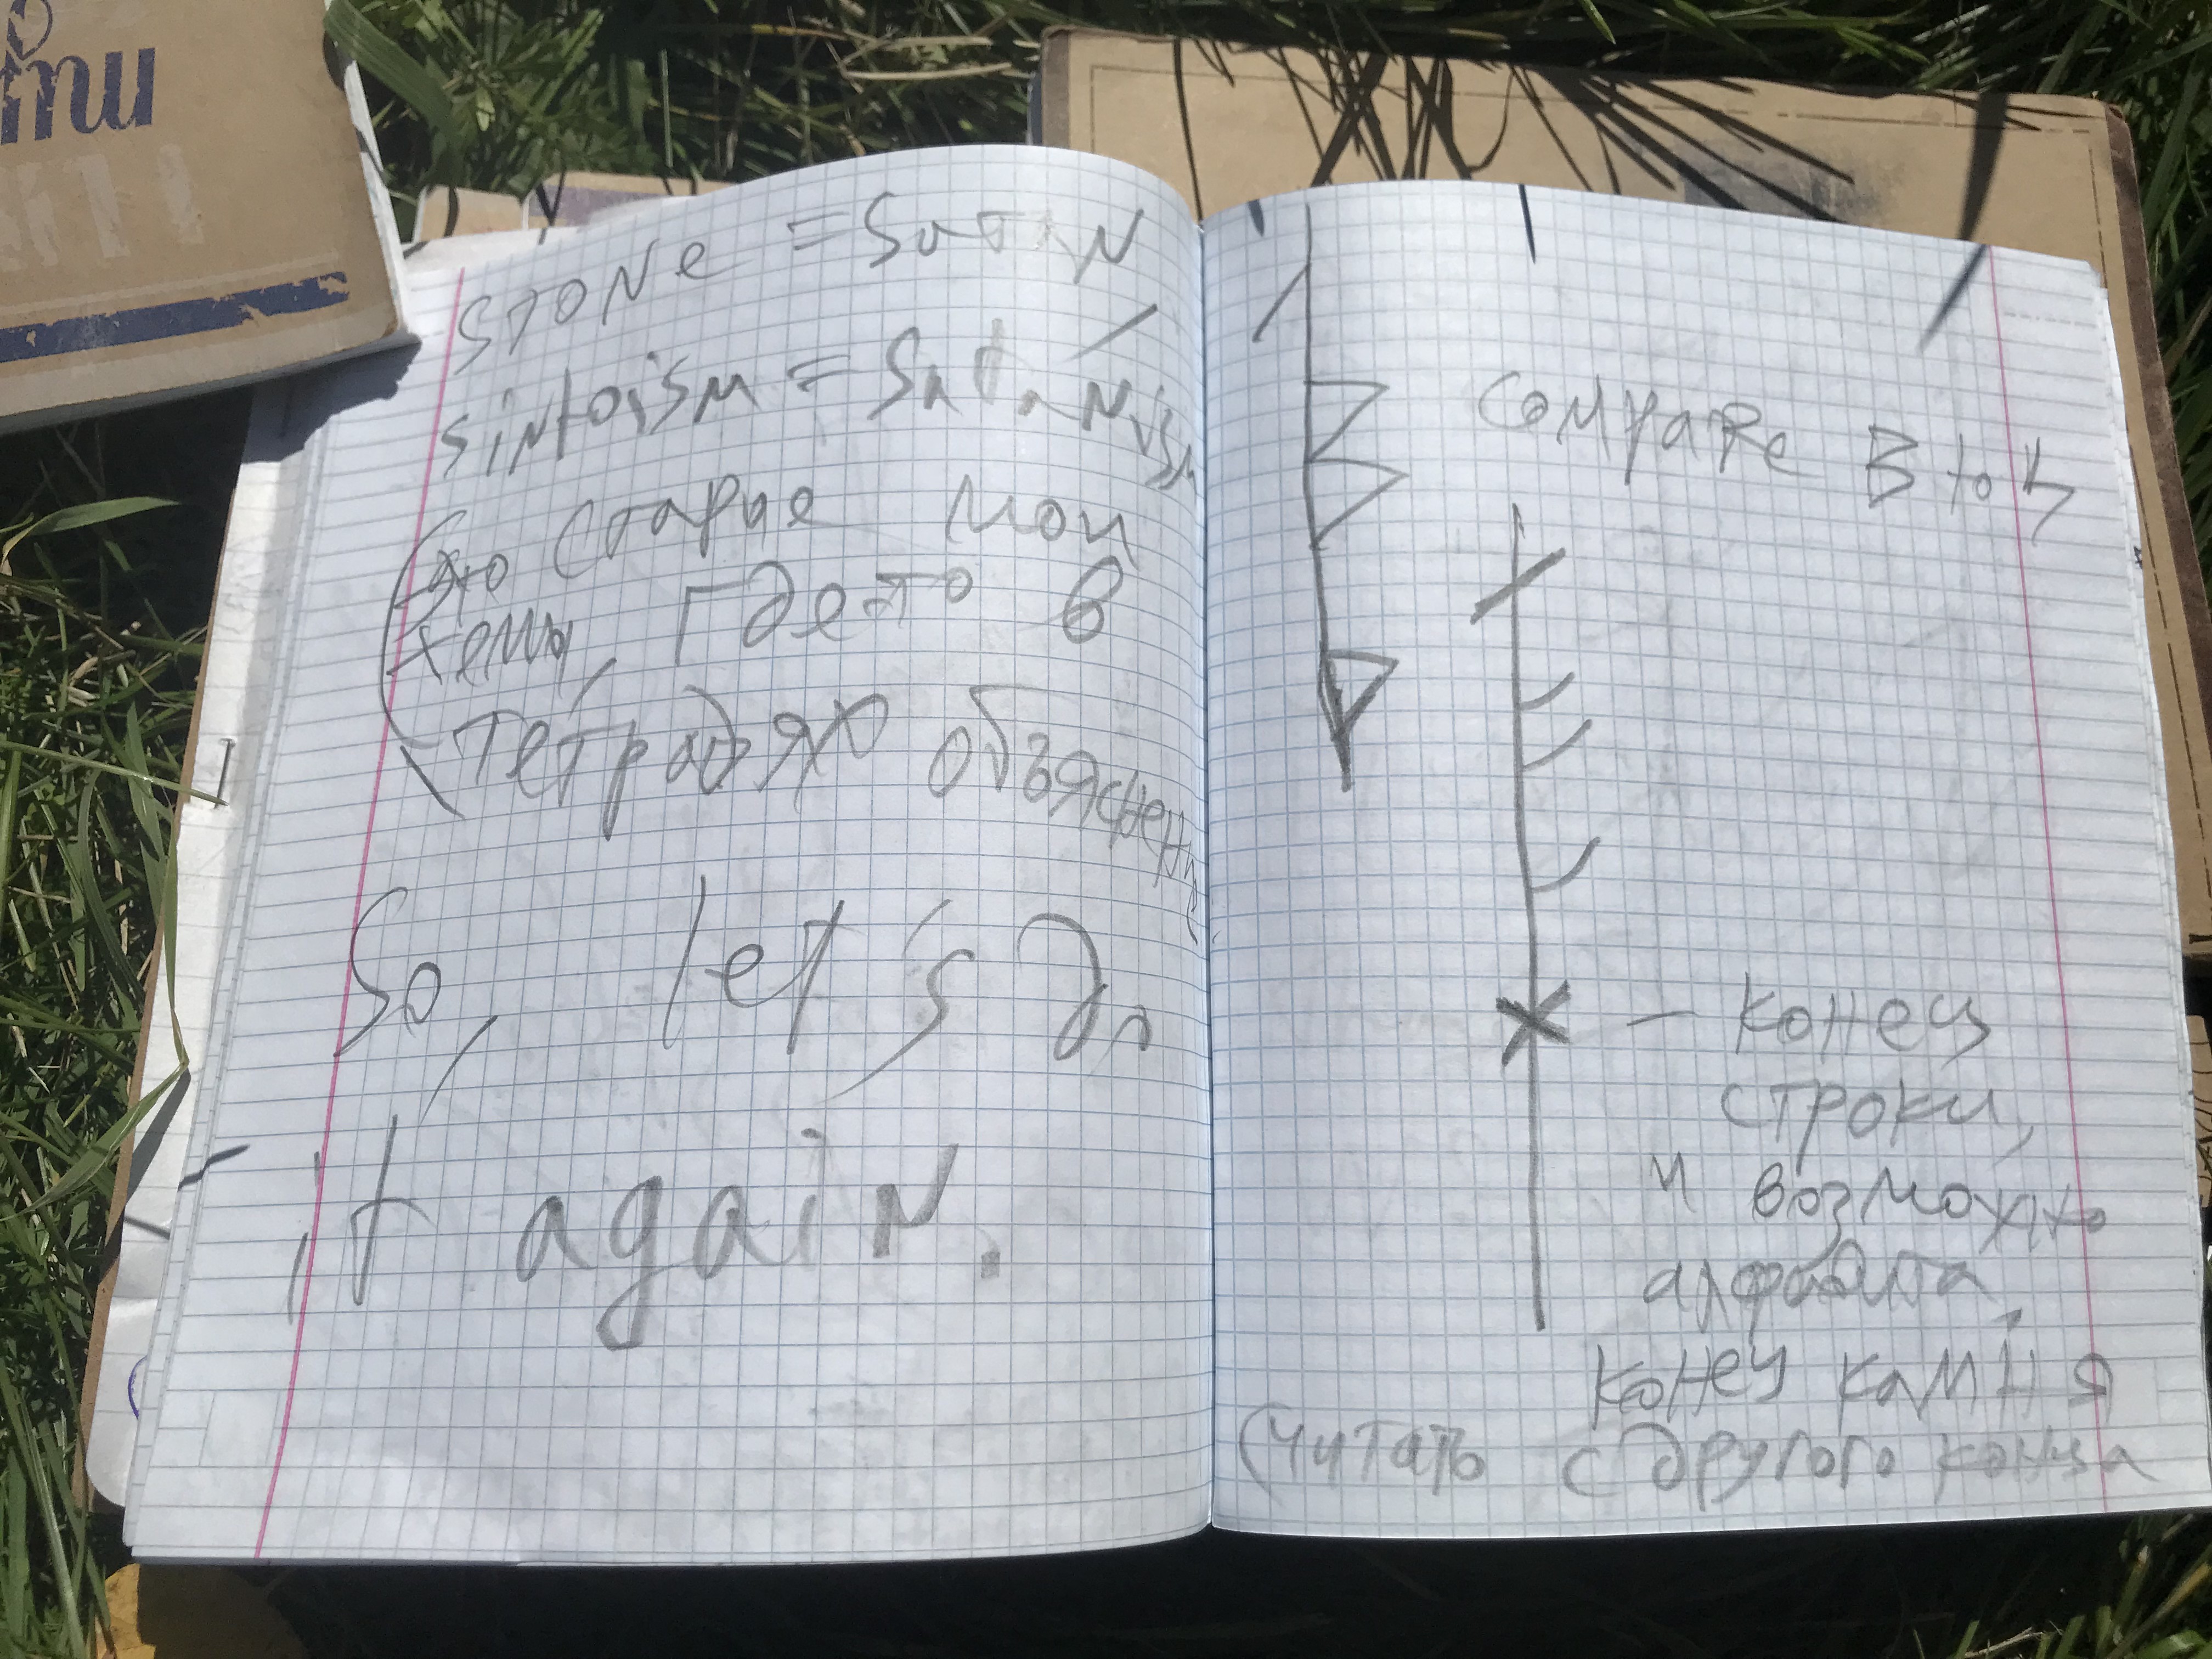 STONe = SaTAN
sintoism = SataNism
(это старые мои
темы, где-то в
тетрадях объяснены)
So, let's do
it again.
Compare B to
— конец
строки,
и возможно
алфавита,
конец камня
(читать с другого конца